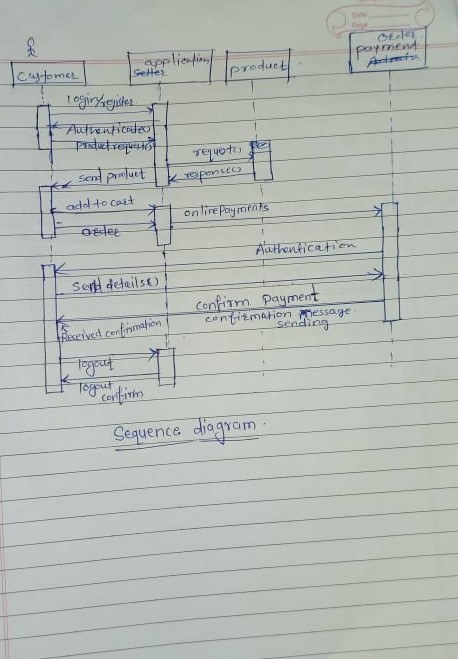 Date
Page
Customer
application
Seller
product
Order
payment
Admin
login/register
Authenticate()
Product request()
request()
response()
send product
add to cart
order
onlinePayments
Authentication
Send details()
confirm payment
confirmation message
sending
Received confirmation
logout
logout
confirm
Sequence diagram.